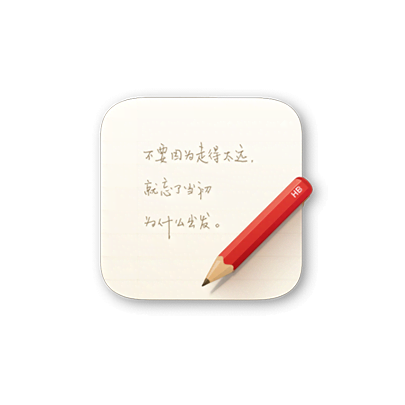 不要因为走得太远，
就忘了当初
为什么出发。
HB